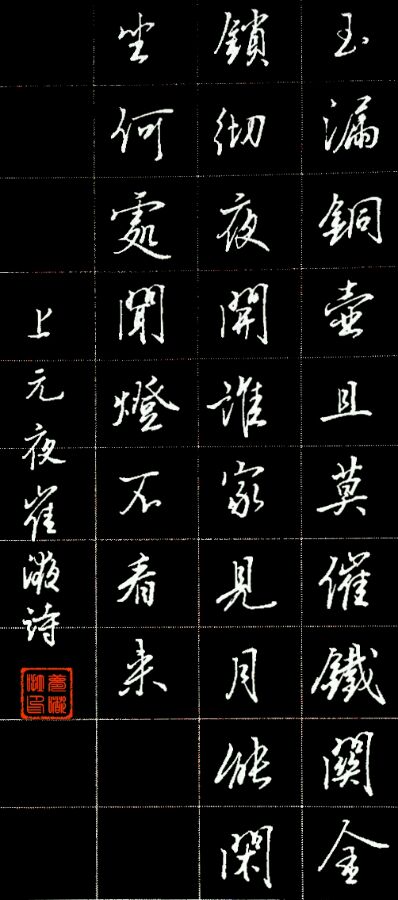 玉漏銅壺且莫催鐵關金
鎖徹夜開誰家見月能閑
坐何處聞燈不看来
上元夜崔灝詩